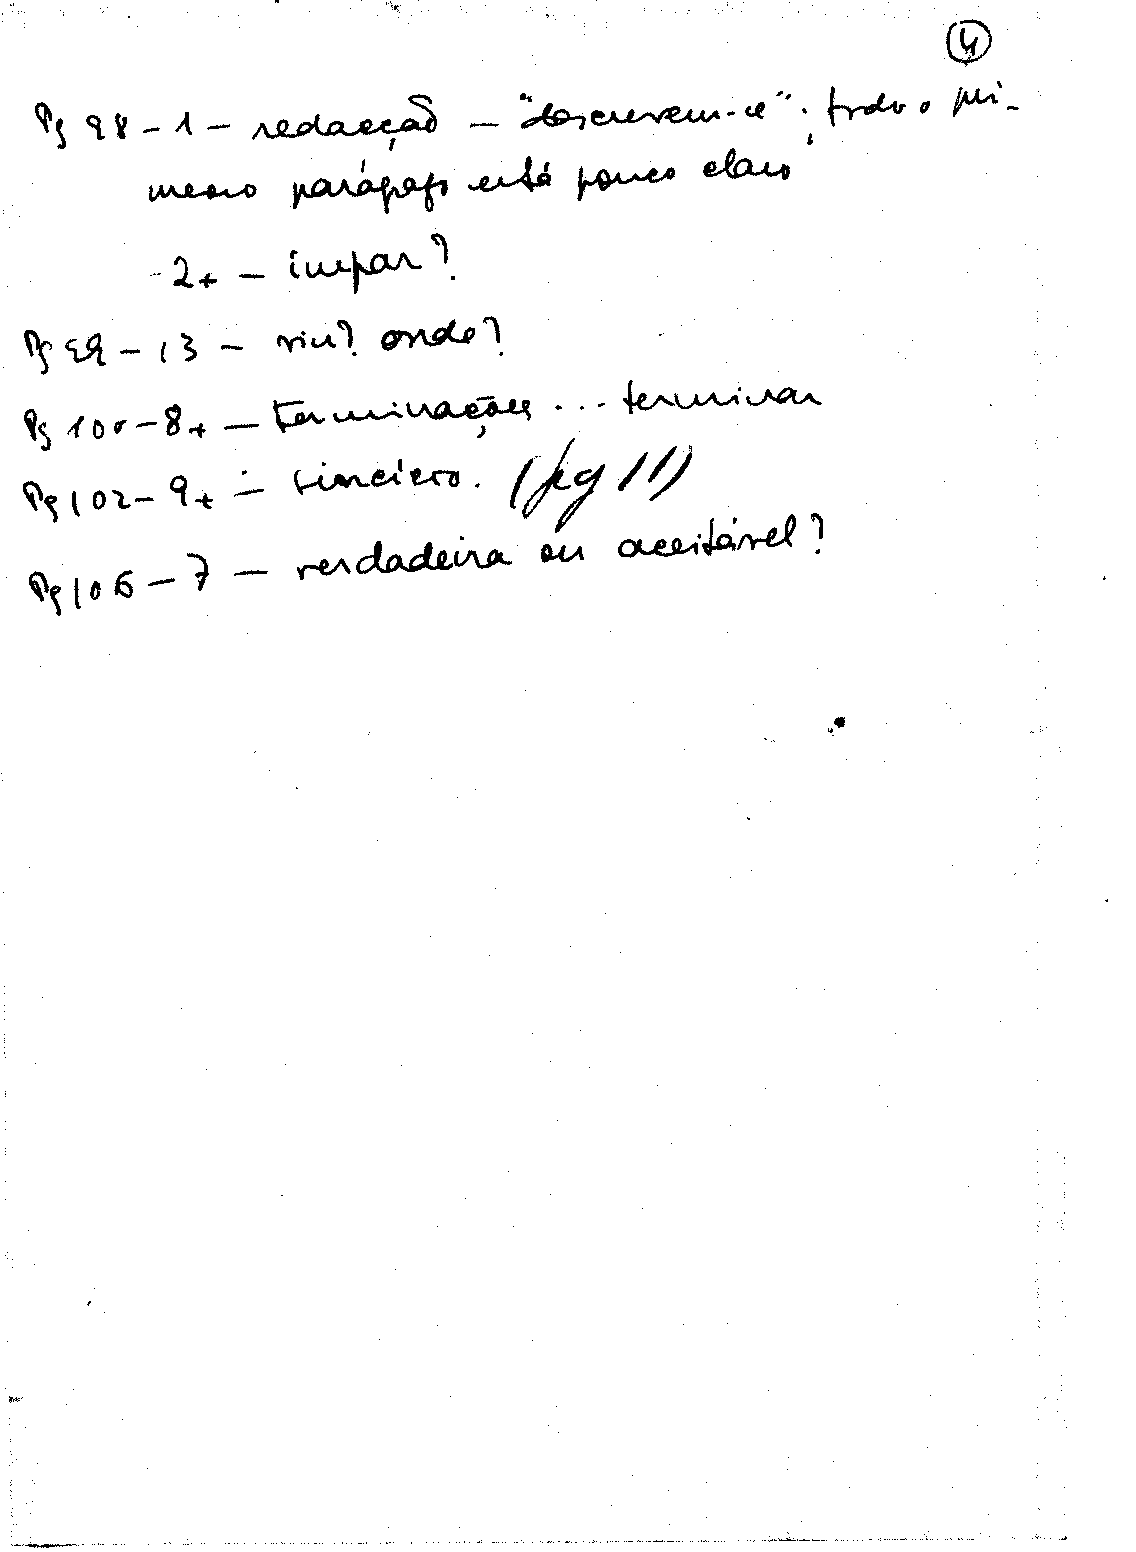 4
Pg 98 - 1 - redacção - "descrevem-se"; todo o pri-
meiro parágrafo está pouco claro
- 2+ - impar?
Pg 99 - 13 - viu? onde?
Pg 100 - 8+ - terminações ... terminar
Pg 102 - 9+ - (pg 11)
Pg 106 - 7 - verdadeira ou aceitável?